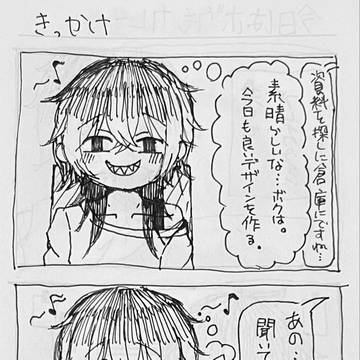 きっかけ
資料を探しに、倉庫にですね…
素晴らしいな…ボクは。
今日も良いデザインを作る。
あの…
聞い